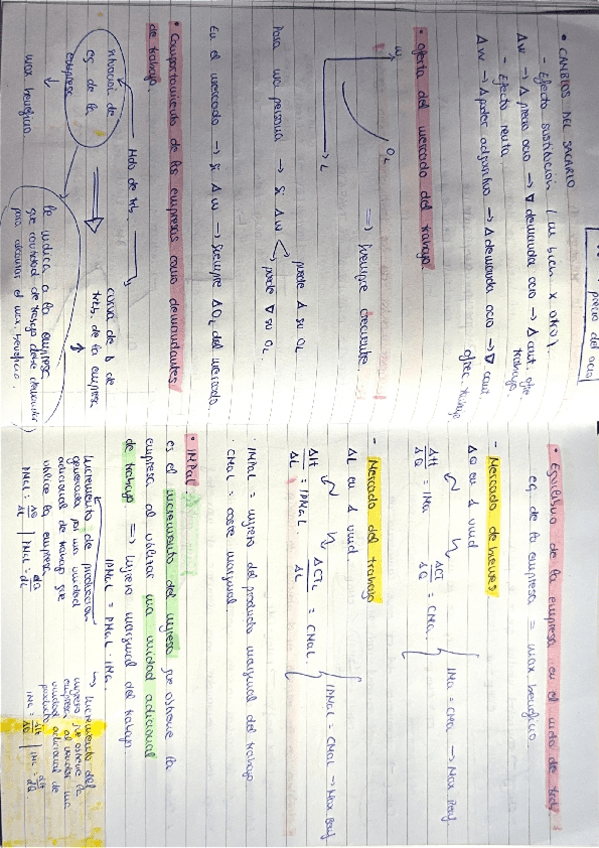 precio del ocio
• CAMBIOS DEL SALARIO
- Efecto sustitución (un bien x otro).
Δ w → Δ precio ocio → ∇ demanda ocio → Δ cant. ofre. trabajo
- Efecto renta
Δ w → Δ poder adquisitivo → Δ demanda ocio → ∇ cant. ofrec. trabajo
• oferta del mercado del trabajo.
w
OL
L
⇒ Siempre creciente.
Para una persona → Si Δ w
puede Δ su OL
puede ∇ su OL
En el mercado → Si Δ w → siempre Δ OL del mercado.
• Comportamiento de las empresas como demandantes
de trabajo.
Mdo de trb.
situación de
eq de la
empresa
↓
max beneficio.
curva de D de
trab. de la empresa
le indica a la empresa
que cantidad de trabajo debe demandar
para alcanzar el max. beneficio.
• Equilibrio de la empresa en el mdo de trab
eq de la empresa = max. beneficio
- Mercado de bienes
Δ Q en 1 unid
ΔIt/ΔQ = IMa
ΔCT/ΔQ = CMa.
IMa = CMa → Max Benf.
- Mercado del trabajo
Δ L en 1 unid.
ΔIt/ΔL = IPMaL
ΔCTL/ΔL = CMaL
IPMaL = CMaL → Max Benf
· IMPaL = ingreso del producto marginal del trabajo
· CMaL = coste marginal.
• IMPaL
es el incremento del ingreso que obtiene la
empresa al utilizar una unidad adicional
de trabajo ⇒ Ingreso marginal del trabajo.
IPMaL = PMaL · IMa.
Incremento de producción
generada por una unidad
adicional de trabajo que
utilice la empresa
PMaL = ΔQ/ΔL | PMaL = dQ/dL
→ Incremento del
ingreso que obtiene la
empresa al vender una
unidad adicional de
producto
IMa = ΔIt/ΔQ | IMa = dIt/dQ